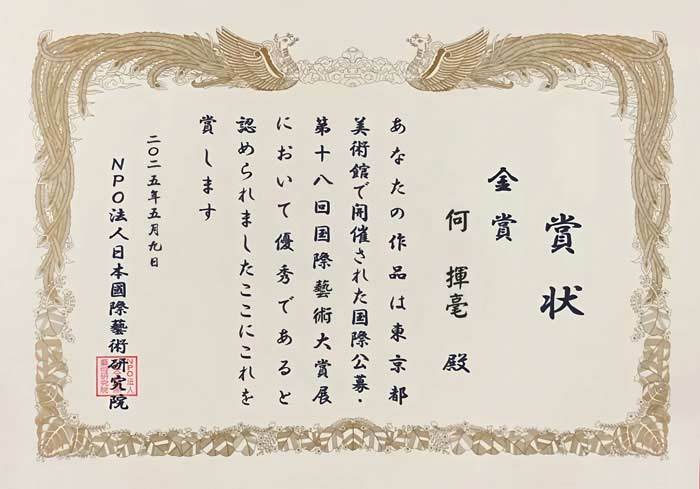 賞状
金賞
何 揮毫 殿
あなたの作品は東京都
美術館で開催された国際公募・
第十八回国際藝術大賞展
において優秀であると
認められましたここにこれを
賞します
二〇二五年五月九日
NPO法人日本國際藝術研究院